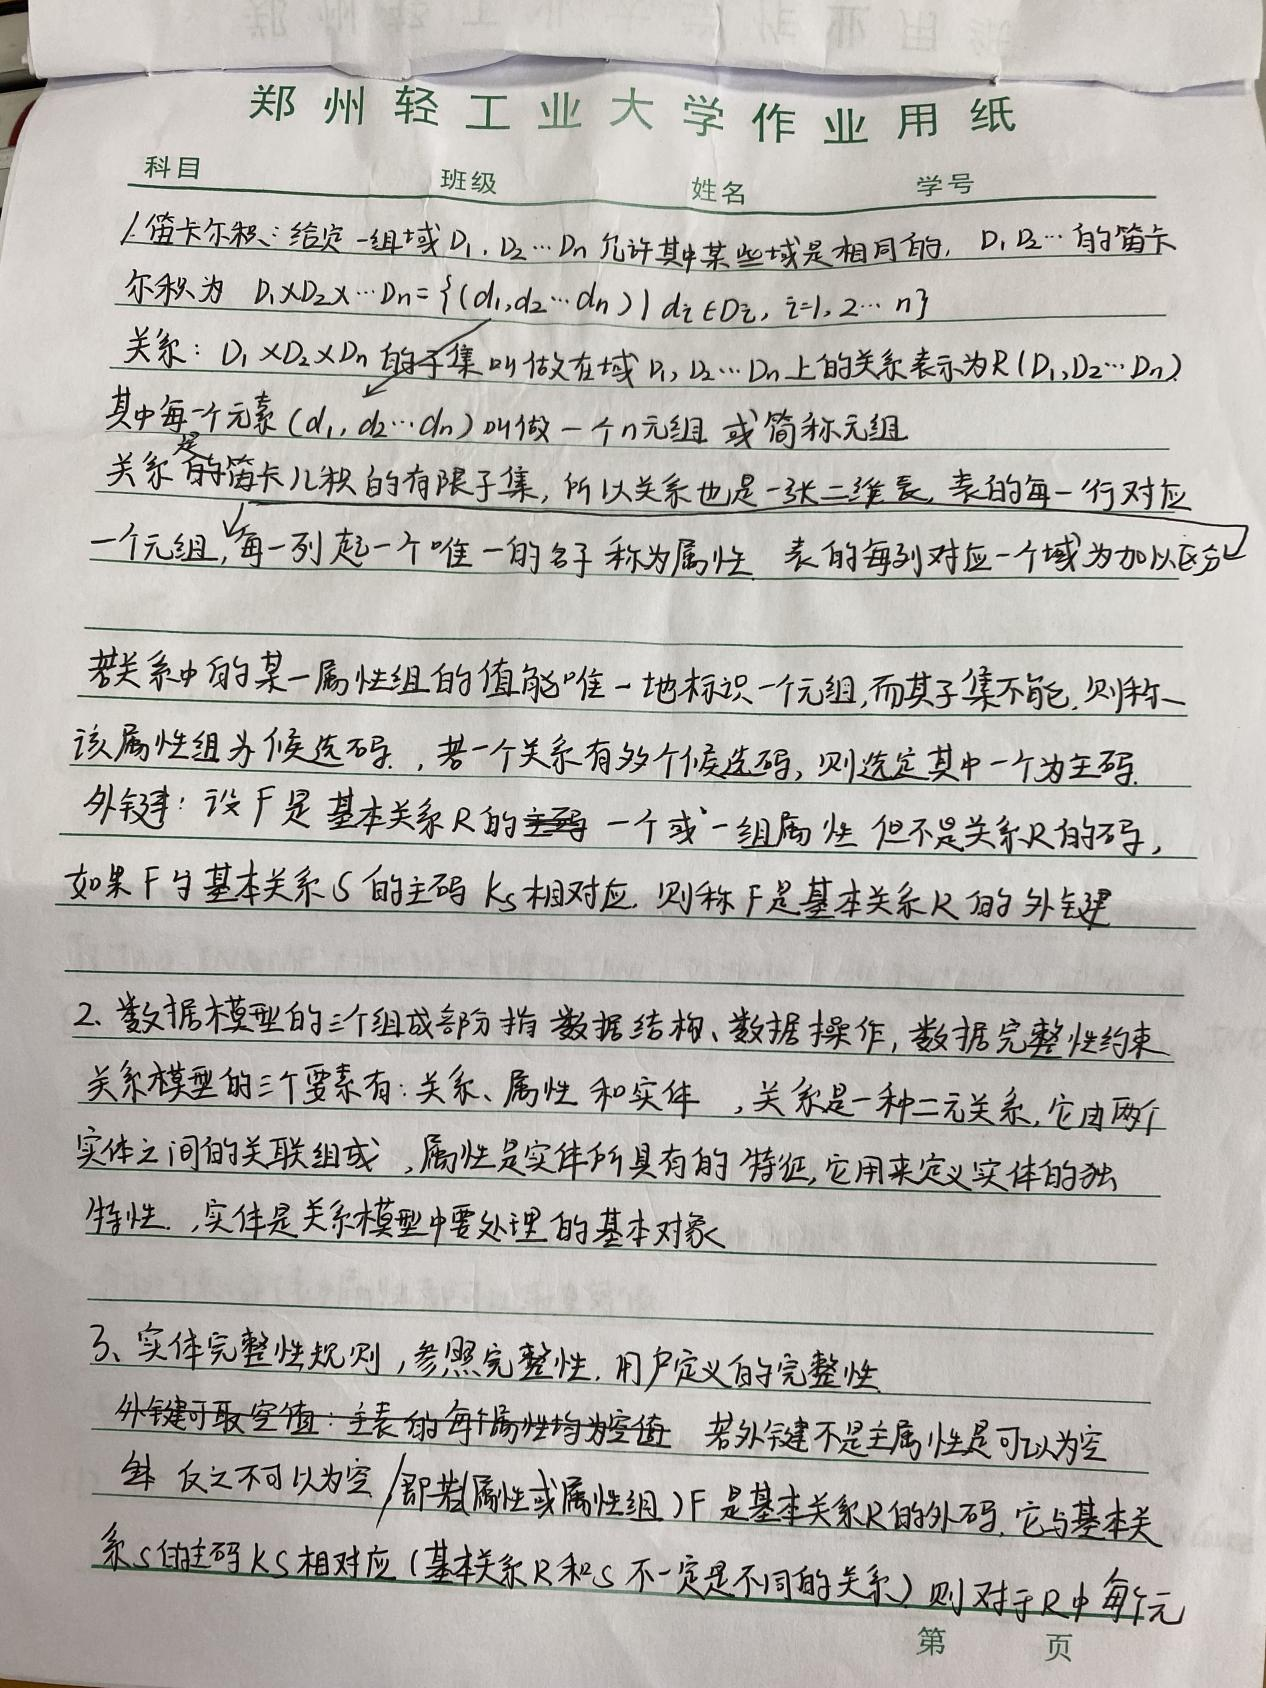 郑州轻工业大学作业用纸
科目 班级 姓名 学号
1. 笛卡尔积：给定一组域D1，D2…Dn 允许其中某些域是相同的，D1 D2…的笛卡
尔积为 D1×D2×…Dn={(d1,d2…dn)|di∈Di, i=1,2…n}
关系：D1×D2×Dn的子集叫做在域D1，D2…Dn上的关系表示为R(D1,D2…Dn)
其中每一个元素(d1，d2…dn)叫做一个n元组或简称元组
关系是的笛卡儿积的有限子集，所以关系也是一张二维表，表的每一行对应
一个元组，每一列起一个唯一的名字称为属性 表的每列对应一个域为加以区分
若关系中的某一属性组的值能唯一地标识一个元组，而其子集不能，则称
该属性组为候选码，若一个关系有多个候选码，则选定其中一个为主码.
外键：设F是基本关系R的主码一个或一组属性但不是关系R的码，
如果F与基本关系S的主码Ks相对应，则称F是基本关系R的外键
2、数据模型的三个组成部分指数据结构、数据操作，数据完整性约束
关系模型的三个要素有：关系、属性和实体，关系是一种二元关系，它由两个
实体之间的关联组成，属性是实体所具有的特征，它用来定义实体的独
特性，实体是关系模型中要处理的基本对象
3、实体完整性规则，参照完整性，用户定义的完整性
外键可取空值：主表的每个属性均为空值 若外键不是主属性是可以为空
反之不可以为空/即若(属性或属性组)F是基本关系R的外码，它与基本关
系S的主码KS相对应(基本关系R和S不一定是不同的关系)则对于R中每个元
第 页